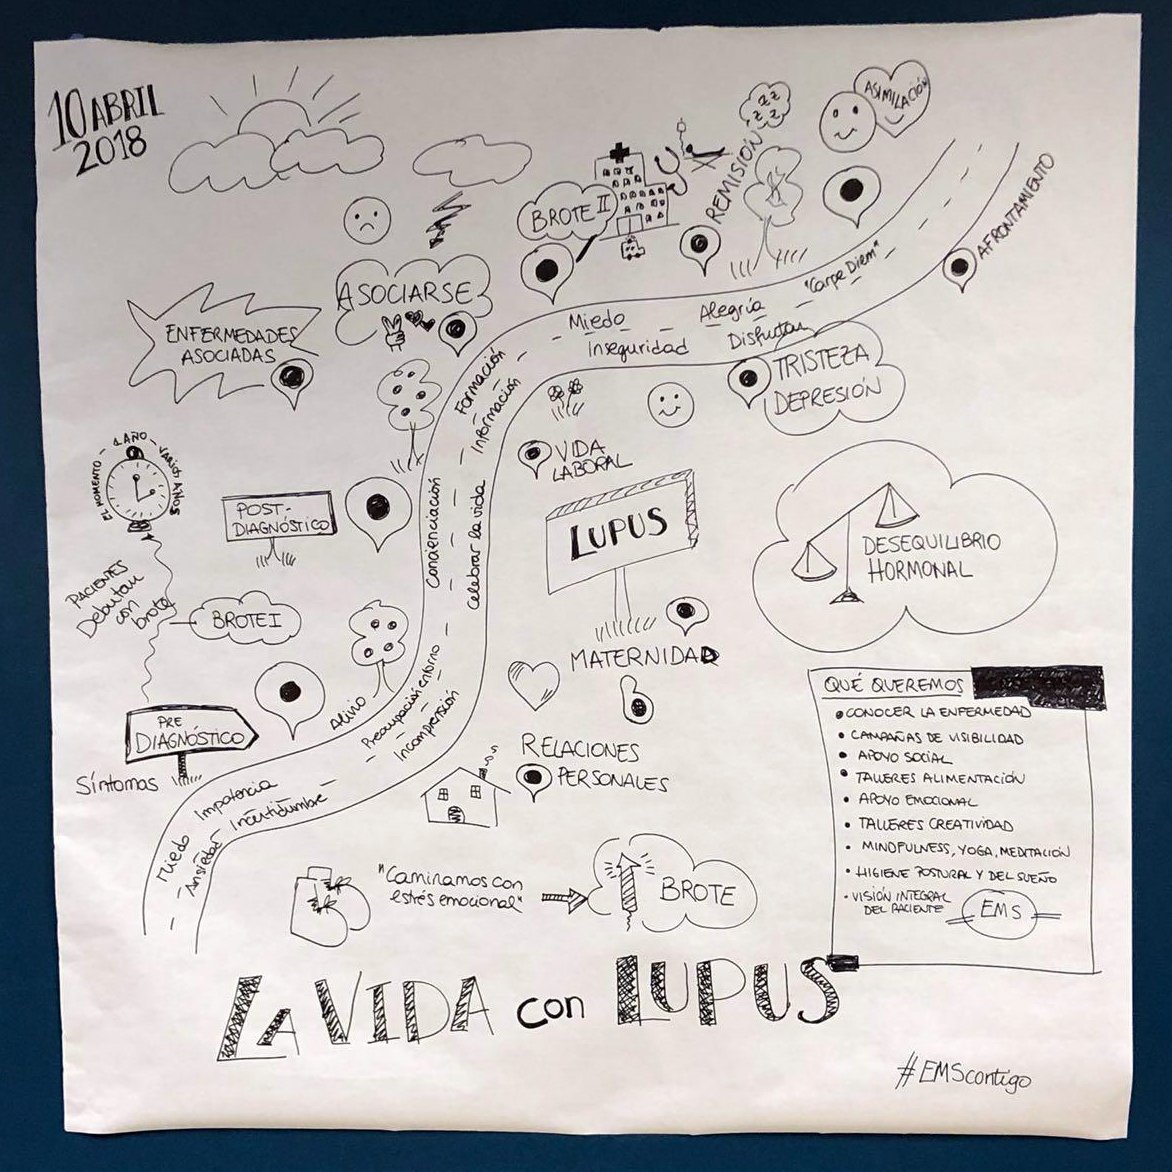 10 ABRIL
2018
ASIMILACIÓN
REMISIÓN
BROTE II
AFRONTAMIENTO
ASOCIARSE
"Carpe Diem"
Alegría
Disfrutar
Miedo
Inseguridad
ENFERMEDADES
ASOCIADAS
TRISTEZA
DEPRESIÓN
Formación
Información
VIDA
LABORAL
EL MOMENTO - 1 AÑO - VARIOS AÑOS
POST-
DIAGNÓSTICO
LUPUS
DESEQUILIBRIO
HORMONAL
Concienciación
Celebrar la vida
PACIENTES
Debutan
con
brote
BROTE I
MATERNIDAD
PRE
DIAGNÓSTICO
Síntomas
Alivio
Preocupación entorno
Incomprensión
RELACIONES
PERSONALES
Impotencia
Incertidumbre
Miedo
Ansiedad
QUÉ QUEREMOS
• CONOCER LA ENFERMEDAD
• CAMPAÑAS DE VISIBILIDAD
• APOYO SOCIAL
• TALLERES ALIMENTACIÓN
• APOYO EMOCIONAL
• TALLERES CREATIVIDAD
• MINDFULNESS, YOGA, MEDITACIÓN
• HIGIENE POSTURAL Y DEL SUEÑO
• VISIÓN INTEGRAL
DEL PACIENTE
EMS
"Caminamos con
estrés emocional"
BROTE
LA VIDA con LUPUS
#EMScontigo